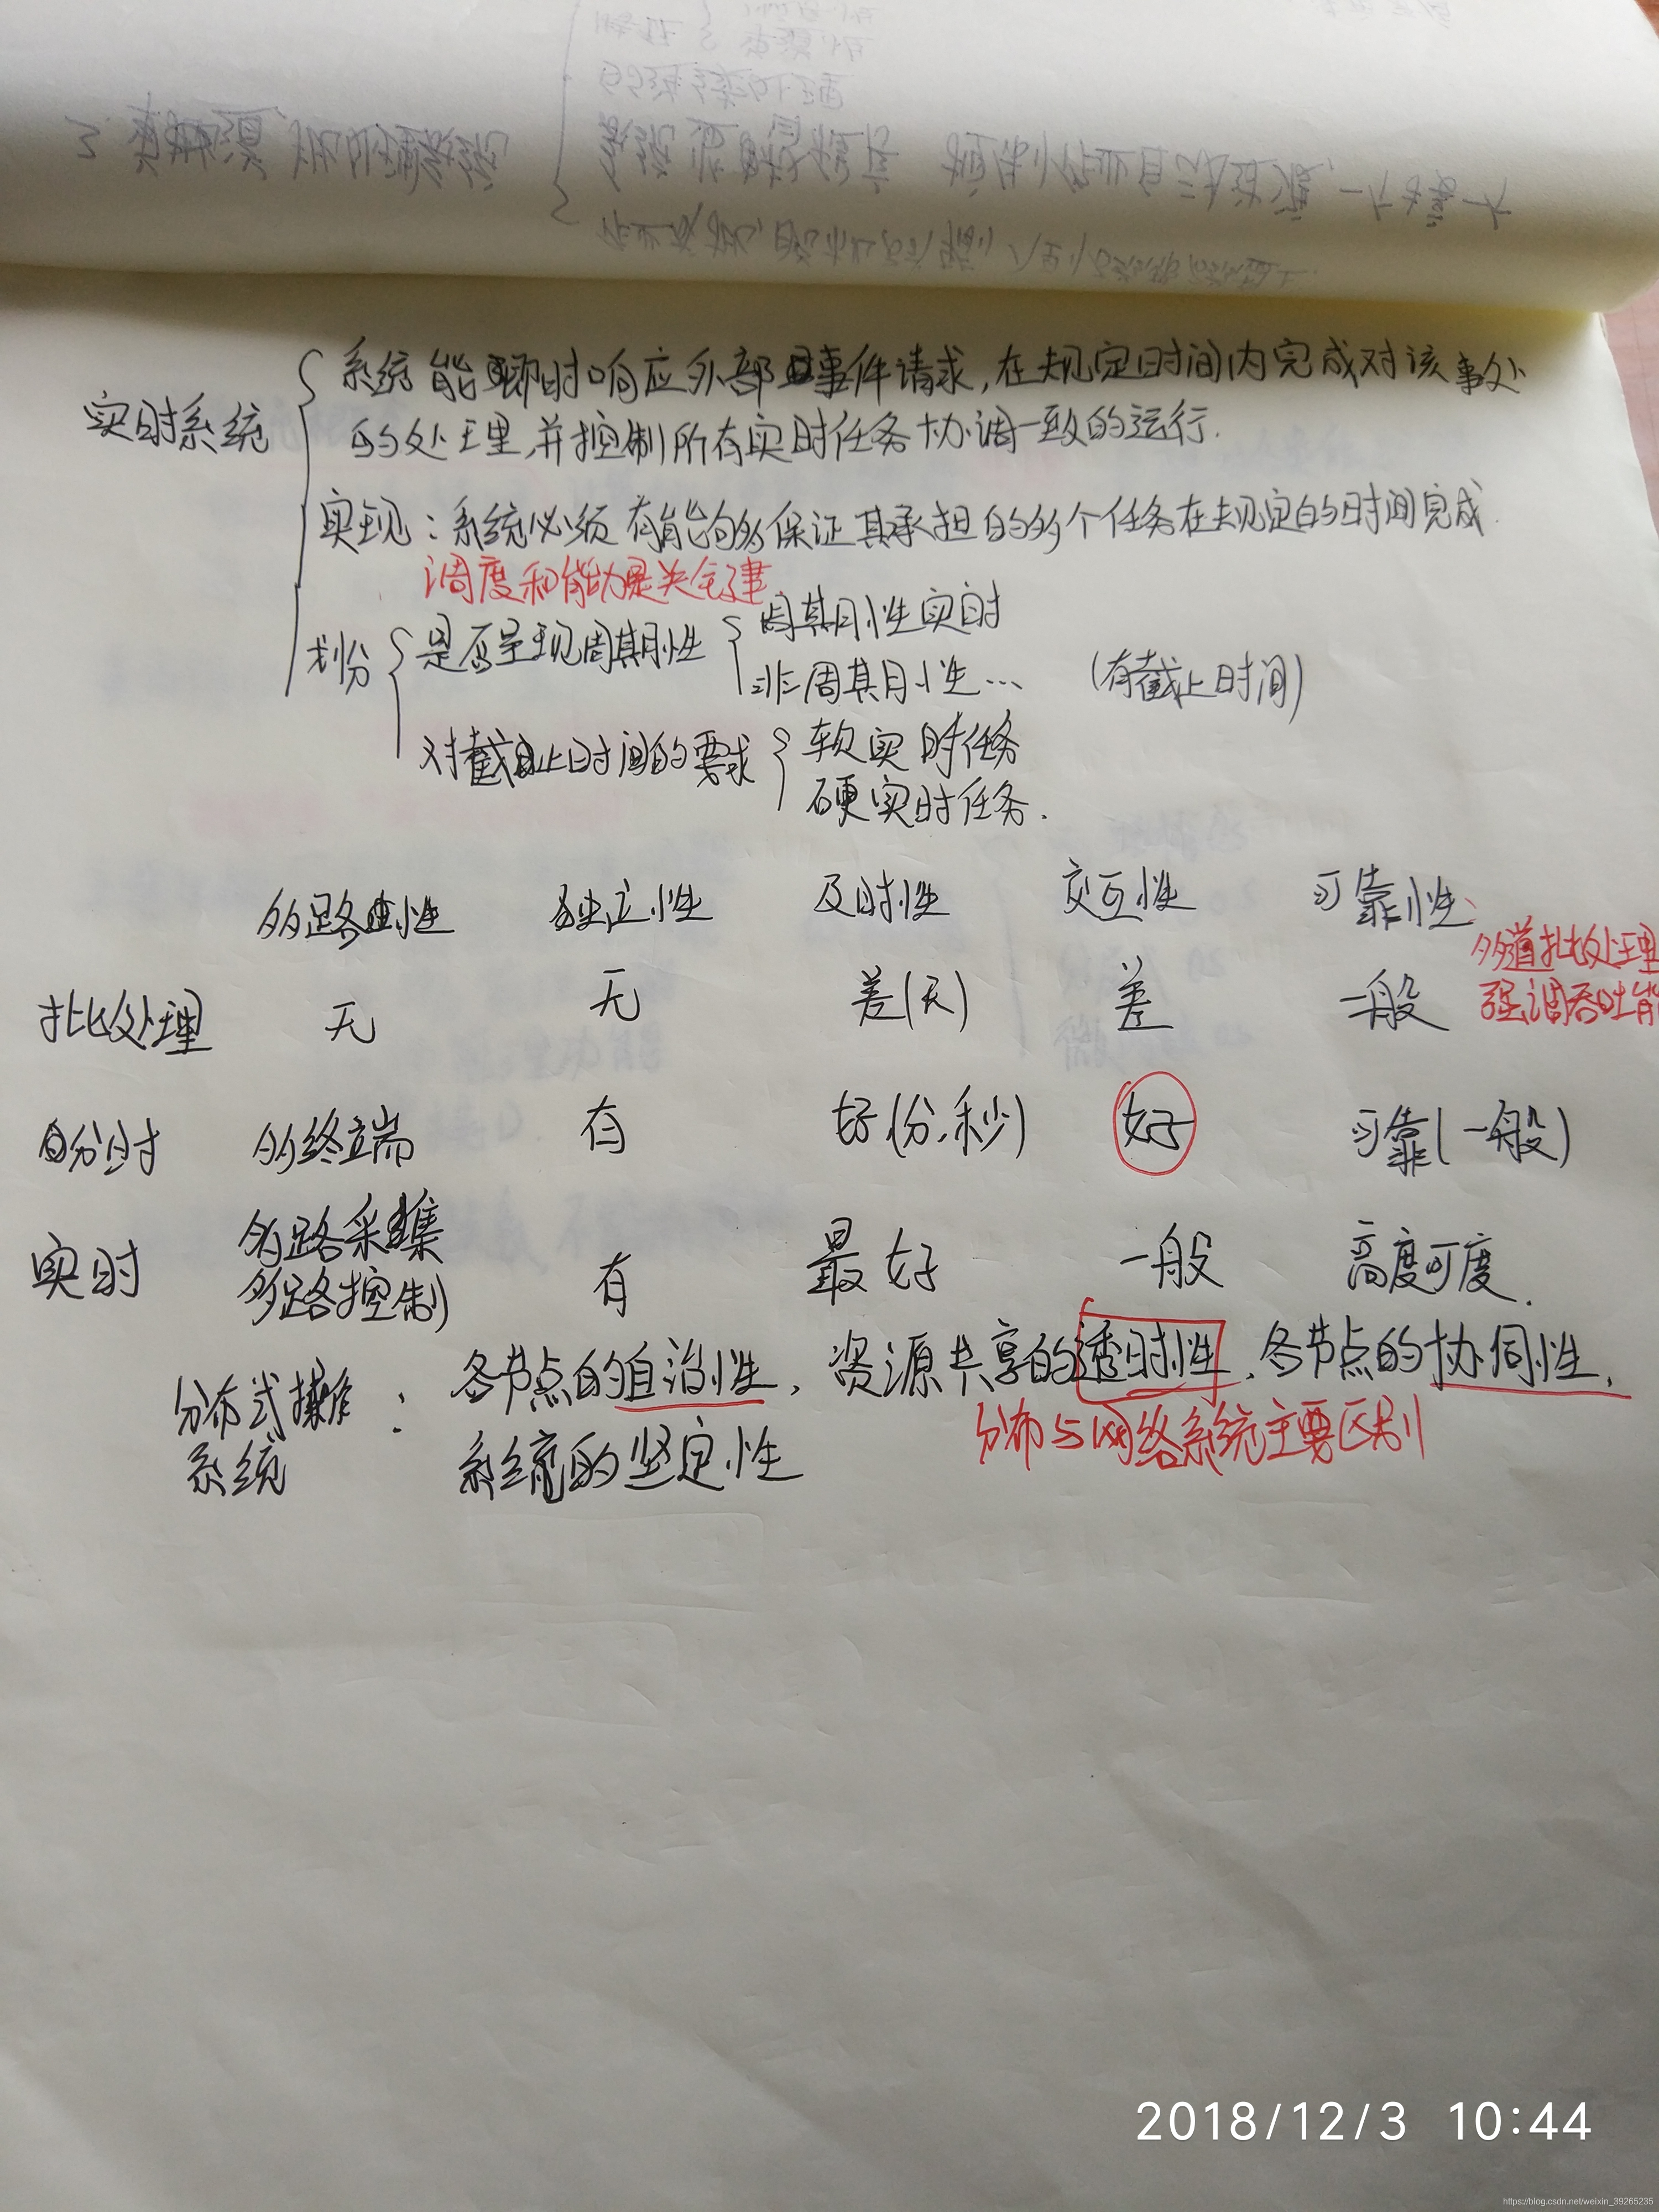 实时系统
系统能即时响应外部事件请求,在规定时间内完成对该事处
的处理,并控制所有实时任务协调一致的运行.
实现：系统必须有能够保证其承担的多个任务在规定的时间完成.
调度和能力是关键
划分 是否呈现周期性 周期性实时
非周期性… (有截止时间)
对截止时间的要求 软实时任务
硬实时任务.
多路性 独立性 及时性 交互性 可靠性
多道批处理
强调吞吐
批处理 无 无 差(天) 差 一般
分时 多终端 有 好(分、秒) 好 可靠(一般)
实时 多路采集
多路控制 有 最好 一般 高度可度.
分布式操作
系统
： 各节点的自治性, 资源共享的透时性、各节点的协同性,
分布与网络系统主要区别
系统的坚定性
2018/12/3 10:44
https://blog.csdn.net/weixin_39265235